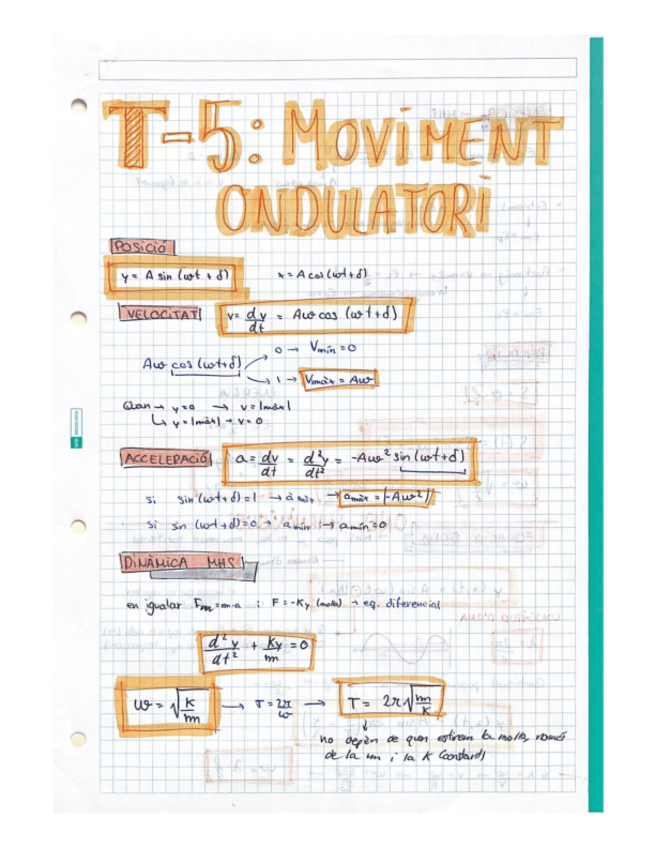 T-5: MOVIMENT
ONDULATORI
POSICIÓ
y = A sin (ωt + δ) x = A cos (ωt + δ)
VELOCITAT v = dy/dt = Aω cos (ωt + δ)
Aω cos (ωt + δ) 0 → Vmín = 0
1 → Vmàx = Aω
Quan → y = 0 → v = |màx|
↳ y = |màx| → v = 0
ACCELERACIÓ a = dv/dt = d²y/dt² = -Aω² sin (ωt + δ)
si sin (ωt + δ) = 1 → a màx → amàx = |-Aω²|
si sin (ωt + δ) = 0 → a mín → amín = 0
DINÀMICA MHS
en igualar Fm = m·a i F = -Ky (molla) → eq. diferencial
d²y/dt² + Ky/m = 0
ω = √K/m → T = 2π/ω → T = 2π√m/K
no depèn de quan estirem la molla, només
de la m i la K (constant)